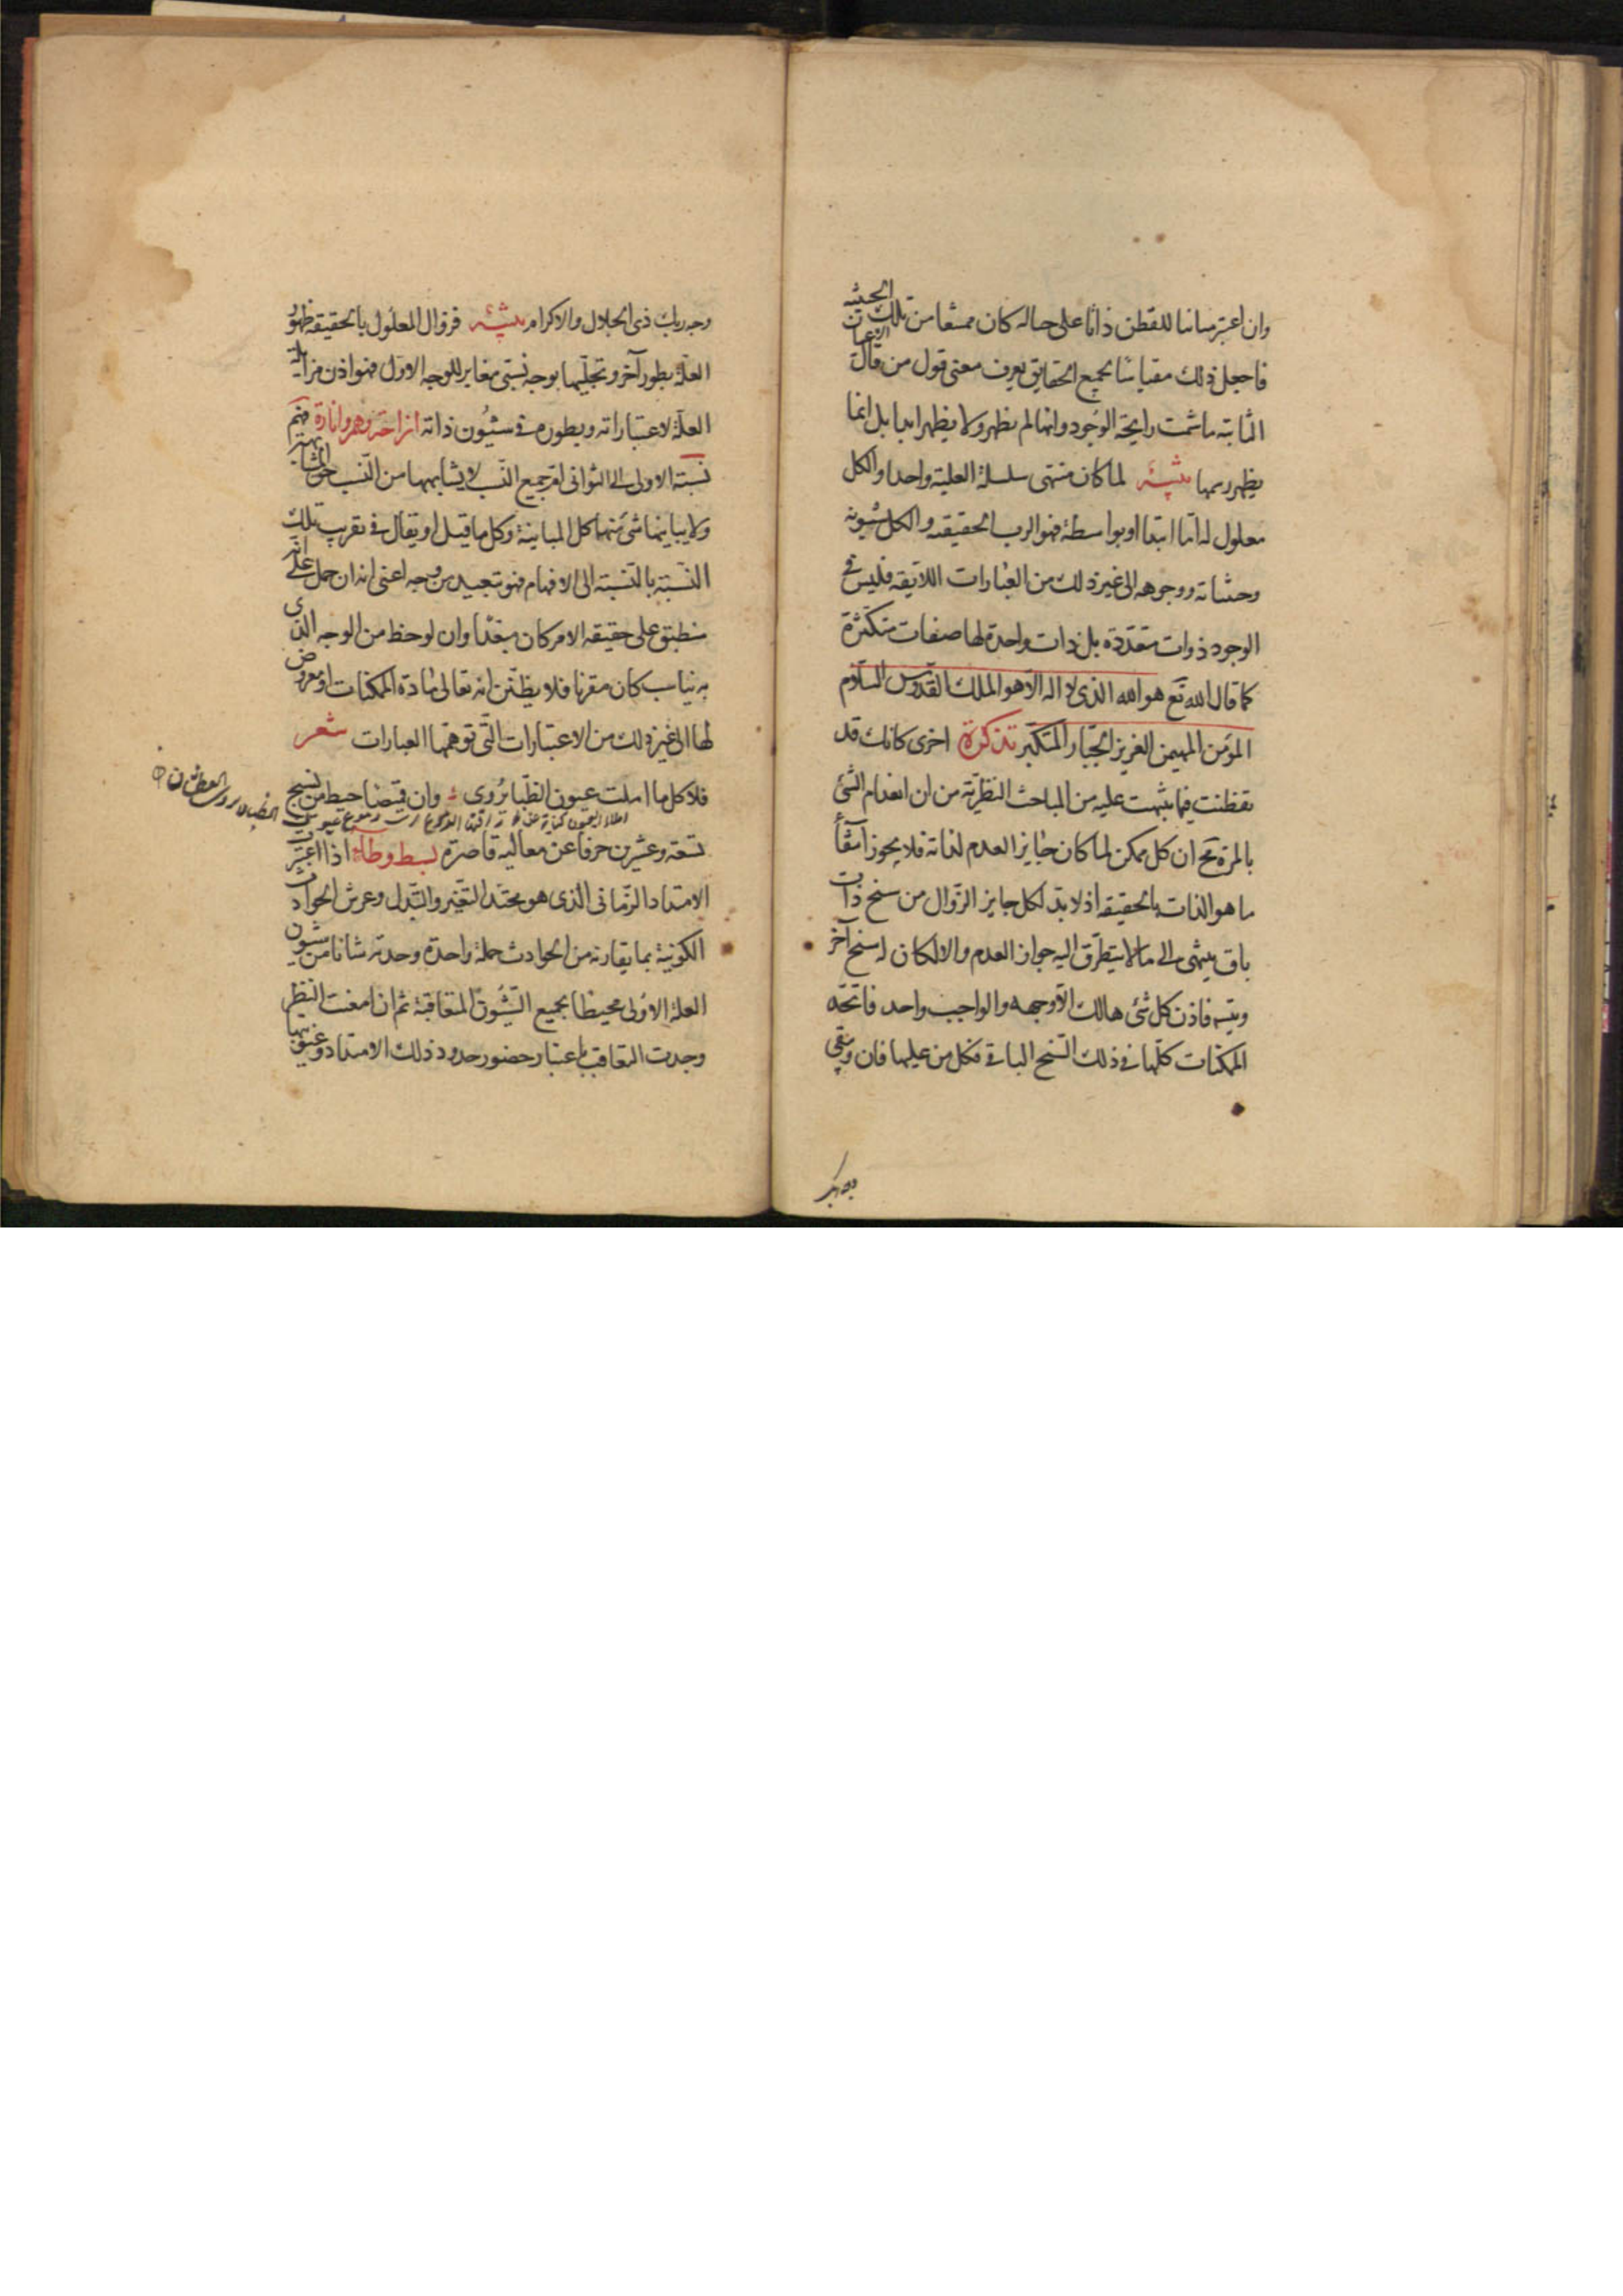 وان اعتبر مباينا للقطن ذاتا على حياله كان ممتنعا من تلك الحيثية
فاجعل ذلك مقياسا لجميع الحقايق يعرف معنى قول من قال الاعيان
الثابتة ما شمت رايحة الوجود وانها لم يظهر ولا يظهر ابدا بل انما
يظهر رسمها تنبيه لما كان منتهى سلسلة العلية واحدا والكل
معلول له اما ابتدا او بواسطة فهو الرب الحقيقه والكل شيونه
وحيثياته ووجوهه الى غير ذلك من العبارات اللائقه فليس في
الوجود ذوات متعددة بل ذات واحدة لها صفات متكثرة
كما قال الله تع هو الله الذى لا اله الا هو الملك القدوس السلام
المؤمن المهيمن العزيز الجبار المتكبر تذكرة اخرى كانك قد
تفطنت فيما نبهت عليه من المباحث النظرية من ان انعدام الشئ
بالمرة مح ان كل ممكن لما كان جايز العدم لذاته فلا يجوز
ما هو الذات بالحقيقه اذ لا بد لكل جايز الزوال من سنخ ذات
باق ينتهى الى ما لا يتطرق اليه جواز العدم والا لكان له سنخ آخر
فاذن كل شئ هالك الا وجهه والواجب واحد
الممكنات كلها فى ذلك السنخ الباقى فكل من عليها فان ويبقى
وجه ربك ذى الجلال والاكرام تنبيه فزوال المعلول بالحقيقه ظهور
العلة بطور آخر وتجليها بوجه نسبتى مغاير للوجه الاول فهو اذن من
العلة لاعتباراته وبطوره فى شيون ذاته ازاحة وهم وانارة فهم
نسبة الاولى الى الثوانى ام جميع النسب لا يشابهها من النسب حق المشابهة
ولا يباينها شئ منها كل المباينة وكل ما قيل او يقال فى تقريب تلك
النسبة بالنسبة الى الافهام فهو تبعيد من وجه اعنى انه ان حمل على انه
منطبق على حقيقه الامر كان مبعدا وان لوحظ من الوجه الذى
به يناسب كان مقربا فلا يظنن انه تعالى مادة الممكنات او معروض
لها الى غير ذلك من الاعتبارات التى توهمها العبارات شعر
فلا كل ما املت عيون الظبا يروى وان قميصا خيط من نسج
تسعة وعشرين حرفا عن معاليه قاصرة بسط وطاء اذا اعتبرت
الامتداد الزمانى الذى هو محتد التغير والتبدل وعرش الحوادث
الكونية بما يقارنه من الحوادث جملة واحدة وجدته شانا من شيون
العلة الاولى محيطا بجميع الشيون المتعاقبة ثم ان امعنت النظر
وجدت التعاقب باعتبار حضور حدود ذلك الامتداد وغيبوبتها